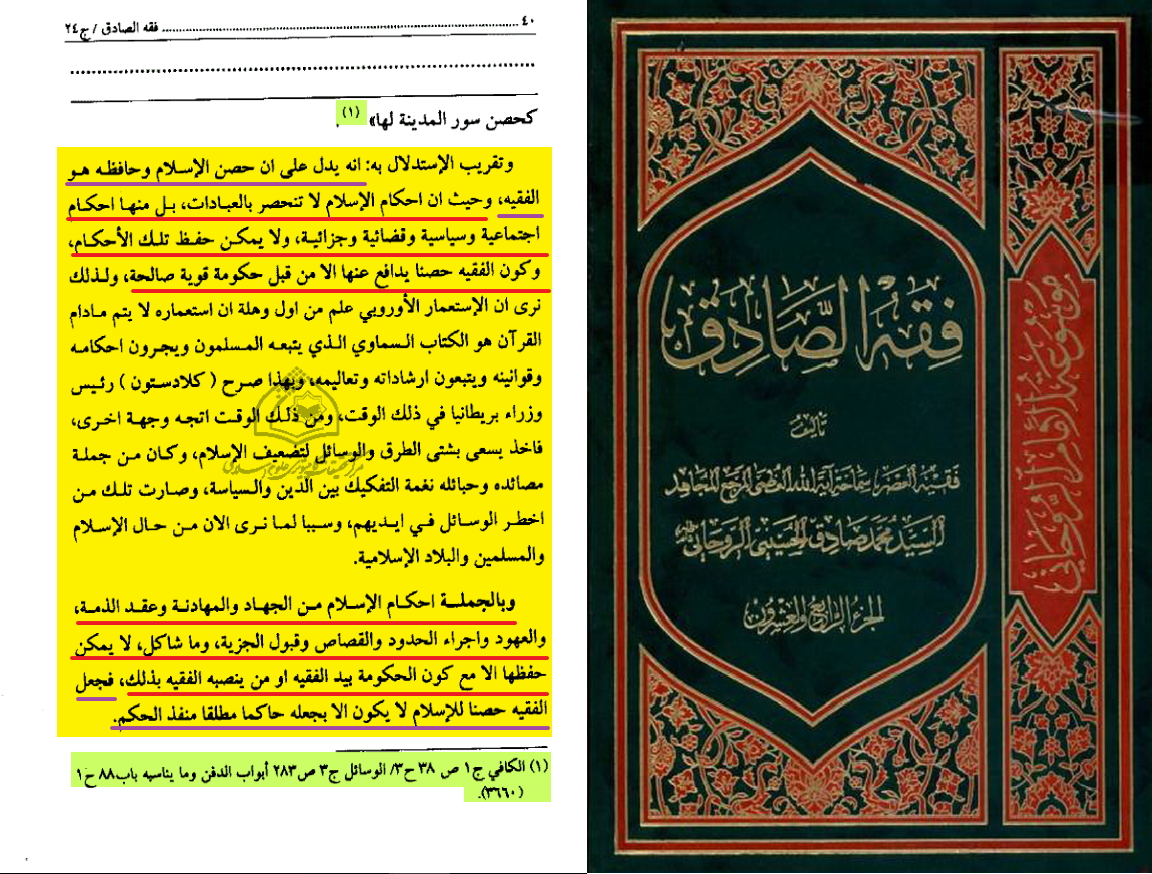 ٤٠ ........ فقه الصادق / ج٢٤
كحصن سور المدينة لها» (١).
وتقريب الإستدلال به: انه يدل على ان حصن الإسلام وحافظه هو
الفقيه، وحيث ان احكام الإسلام لا تنحصر بالعبادات، بل منها احكام
اجتماعية وسياسية وقضائية وجزائية، ولا يمكن حفظ تلك الأحكام،
وكون الفقيه حصنا يدافع عنها الا من قبل حكومة قوية صالحة، ولذلك
نرى ان الإستعمار الأوروبي علم من اول وهلة ان استعماره لا يتم مادام
القرآن هو الكتاب السماوي الذي يتبعه المسلمون ويجرون احكامه
وقوانينه ويتبعون ارشاداته وتعاليمه، وبهذا صرح ( كلادستون ) رئيس
وزراء بريطانيا في ذلك الوقت، ومن ذلك الوقت اتجه وجهة اخرى،
فاخذ يسعى بشتى الطرق والوسائل لتضعيف الإسلام، وكان من جملة
مصائده وحبائله نغمة التفكيك بين الدين والسياسة، وصارت تلك من
اخطر الوسائل في ايديهم، وسببا لما نرى الان من حال الإسلام
والمسلمين والبلاد الإسلامية.
وبالجملة احكام الإسلام من الجهاد والمهادنة وعقد الذمة،
والعهود واجراء الحدود والقصاص وقبول الجزية، وما شاكل، لا يمكن
حفظها الا مع كون الحكومة بيد الفقيه او من ينصبه الفقيه بذلك، فجعل
الفقيه حصنا للإسلام لا يكون الا بجعله حاكما مطلقا منفذ الحكم.
(١) الكافي ج١ ص ٣٨ ح٣/ الوسائل ج٣ ص٢٨٣ أبواب الدفن وما يناسبه باب٨٨ ح١
(٣٦٦٠).
فقه الصادق
تأليف
فقيه العصر سماحة آية الله العظمى المرجع المجاهد
السيد محمد صادق الحسيني الروحاني
الجزء الرابع والعشرون
موسوعة الإمام الروحاني